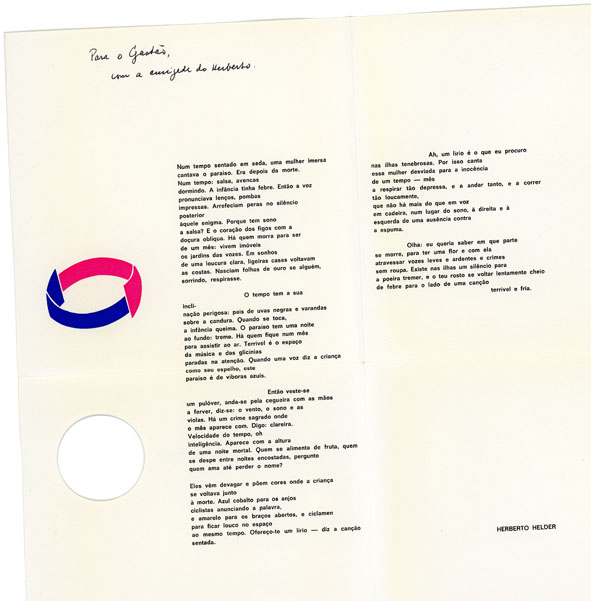 Para o Gastão,
com a amizade do Herberto.
Num tempo sentado em seda, uma mulher imersa
cantava o paraíso. Era depois da morte.
Num tempo: salsa, avencas
dormindo. A infância tinha febre. Então a voz
pronunciava lenços, pombas
impressas. Arrefeciam peras no silêncio
posterior
àquele enigma. Porque tem sono
a salsa? E o coração dos figos com a
doçura oblíqua. Há quem morra para ser
de um mês: vivem imóveis
os jardins das vozes. Em sonhos
de uma loucura clara, ligeiras casas voltavam
as costas. Nasciam folhas de ouro se alguém,
sorrindo, respirasse.
O tempo tem a sua
incli-
nação perigosa: pais de uvas negras e varandas
sobre a candura. Quando se toca,
a infância queima. O paraíso tem uma noite
ao fundo: treme. Há quem fique num mês
para assistir ao ar. Terrível é o espaço
da música e das glicínias
paradas na atenção. Quando uma voz diz a criança
como seu espelho, este
paraíso é de víboras azuis.
Então veste-se
um pulóver, anda-se pela cegueira com as mãos
a ferver, diz-se: o vento, o sono e as
violas. Há um crime sagrado onde
o mês aparece com. Digo: clareira.
Velocidade do tempo, oh
inteligência. Aparece com a altura
de uma noite mortal. Quem se alimenta de fruta, quem
se despe entre noites encostadas, pergunto
quem ama até perder o nome?
Eles vêm devagar e põem cores onde a criança
se voltava junto
à morte. Azul cobalto para os anjos
ciclistas anunciando a palavra,
e amarelo para os braços abertos, e ciclamen
para ficar louco no espaço
ao mesmo tempo. Ofereço-te um lírio — diz a canção
sentada.
Ah, um lírio é o que eu procuro
nas ilhas tenebrosas. Por isso canta
essa mulher desviada para a inocência
de um tempo — mês
a respirar tão depressa, e a andar tanto, e a correr
tão loucamente,
que não há mais do que em voz
em cadeira, num lugar do sono, à direita e à
esquerda de uma ausência contra
a espuma.
Olha: eu queria saber em que parte
se morre, para ter uma flor e com ela
atravessar vozes leves e ardentes e crimes
sem roupa. Existe nas ilhas um silêncio para
a poeira tremer, e o teu rosto se voltar lentamente cheio
de febre para o lado de uma canção
terrível e fria.
HERBERTO HELDER